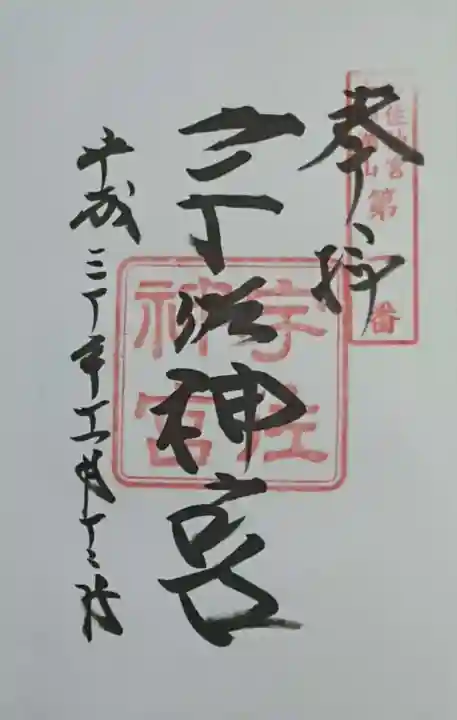 奉拝
第一番
宇佐神宮
宇佐
神宮
平成三十年十一月十二日